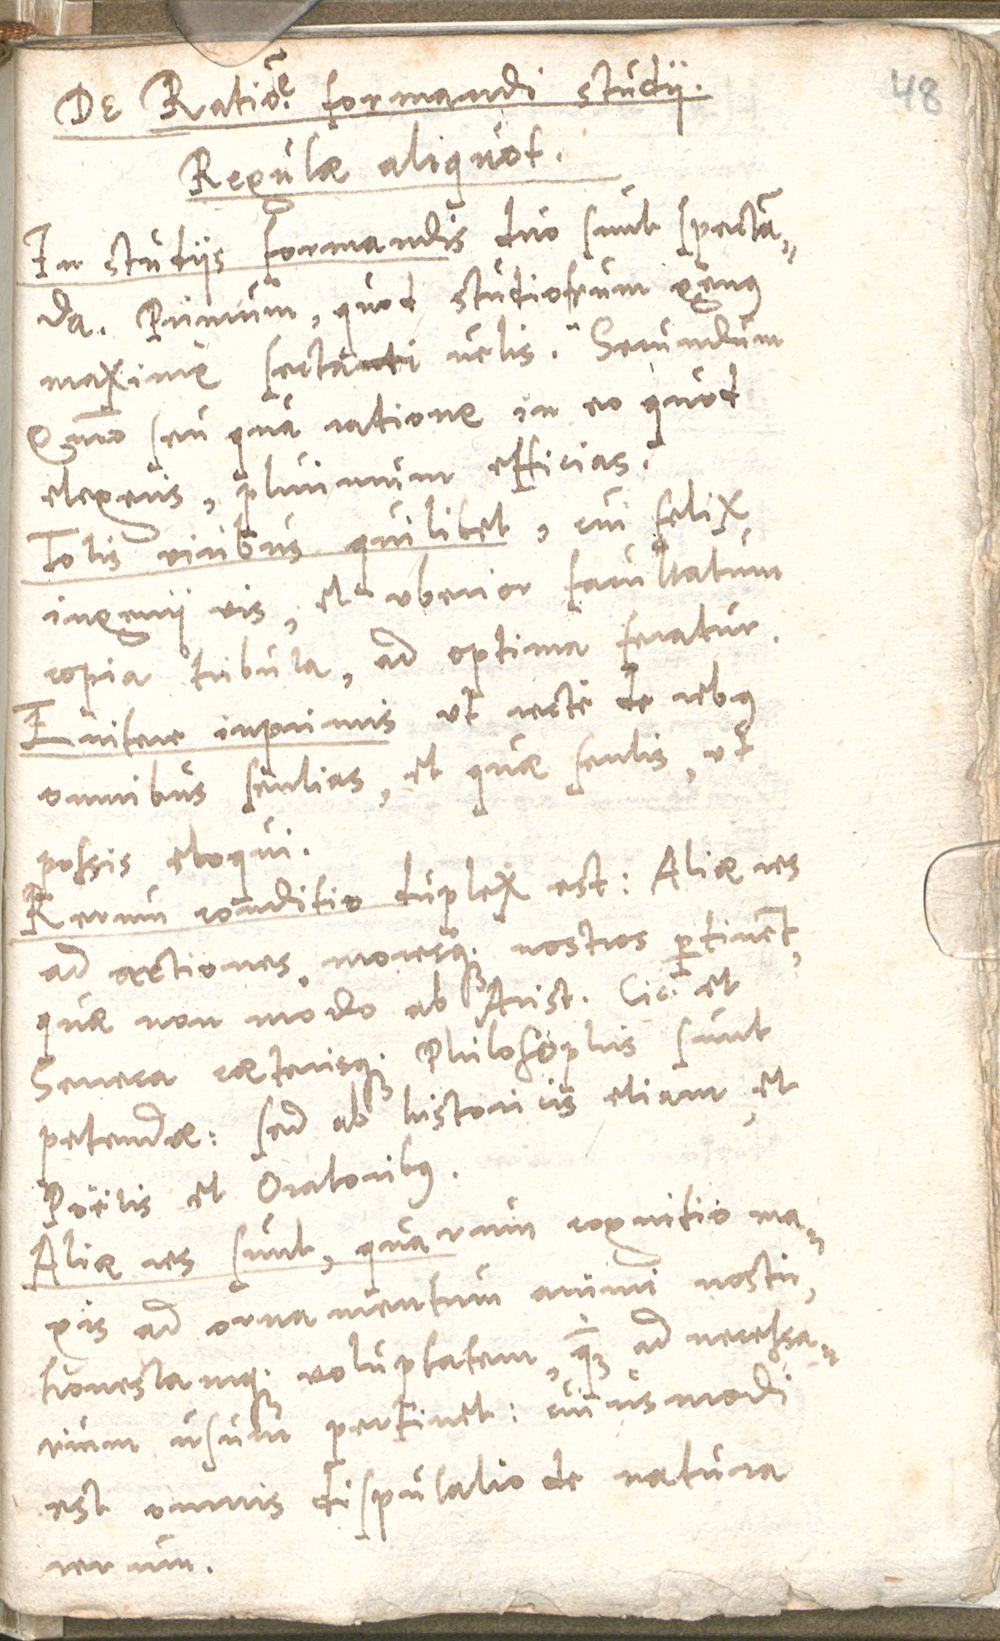 48
De Ratiõe formandi studij.
Regulæ aliquot.
In studijs formandis duo sunt spectã„
da. Primum, quod studiorum genus
maxime sectari velis. Secundum
Qmõ seu qua ratione in eo quod
elegeris, plurimum efficias.
Totis viribus quilibet, cui felix
ingenij vis, et vberior facultatum
copia tributa, ad optima feratur.
Enitere inprimis vt recte de rebus
omnibus sentias, et quæ sentis, vt
possis eloqui.
Rerum conditio duplex est: Aliæ res
ad actiones moresq; nostros ꝑtinent,
quæ non modo ab Arist. Cic. et
Seneca cæterisq; Philosophis sunt
petendæ: sed ab historicis etiam et
Poëtis et Oratoribus.
Aliæ res sunt, quarum cognitio ma„
gis ad ornamentum animi nostri,
honestamq; voluptatem, q̃ ad necessa„
rium vsum pertinet: cuiusmodi
est omnis disputatio de natura
rerum.